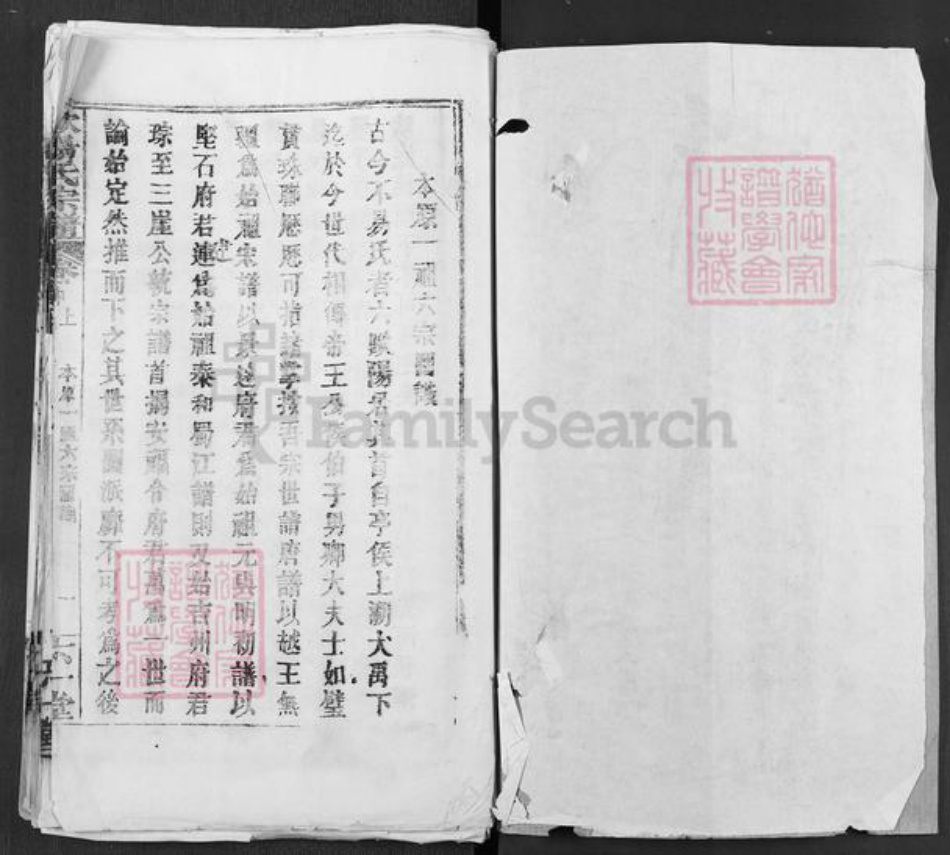 本源一祖六宗圖議
古今不易氏者六歐陽居其首自亭侯上溯大禹下
迄於今世代相傳帝王及侯伯子男卿大夫士如璧
貫珠聯歷歷可指諸掌按吾宗世譜唐譜以越王無
疆為始祖宋譜以景達府君為始祖元與明初譜以
堅石府君建為始祖泰和蜀江譜則又始吉州府君
琮至三崖公統宗譜首揭安福令府君萬為一世而
論始定然推而下之其世系圖派靡不可考為之後
歐陽氏宗譜
卷 上
本源一祖六宗圖議
一
六一堂
猶他家譜學會收藏
猶他家譜學會收藏
FamilySearch